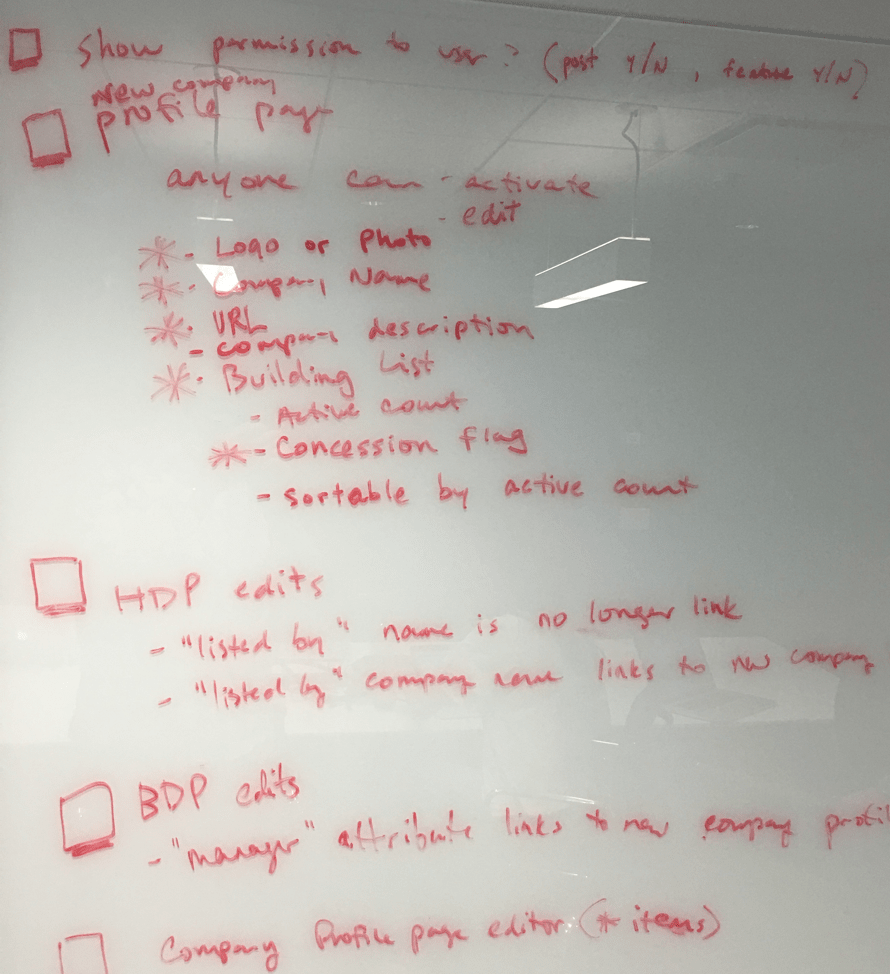 ☐ Show permission to user? (post Y/N, feature Y/N)
New company
☐ profile page
anyone can - activate
- edit
* - Logo or Photo
* - Company Name
* - URL
- company description
* - Building List
- Active count
* - Concession flag
- sortable by active count
☐ HDP edits
- "listed by" name is no longer link
- "listed by" company name links to new company
☐ BDP edits
- "manager" attribute links to new company profil
☐ Company Profile page editor (* items)